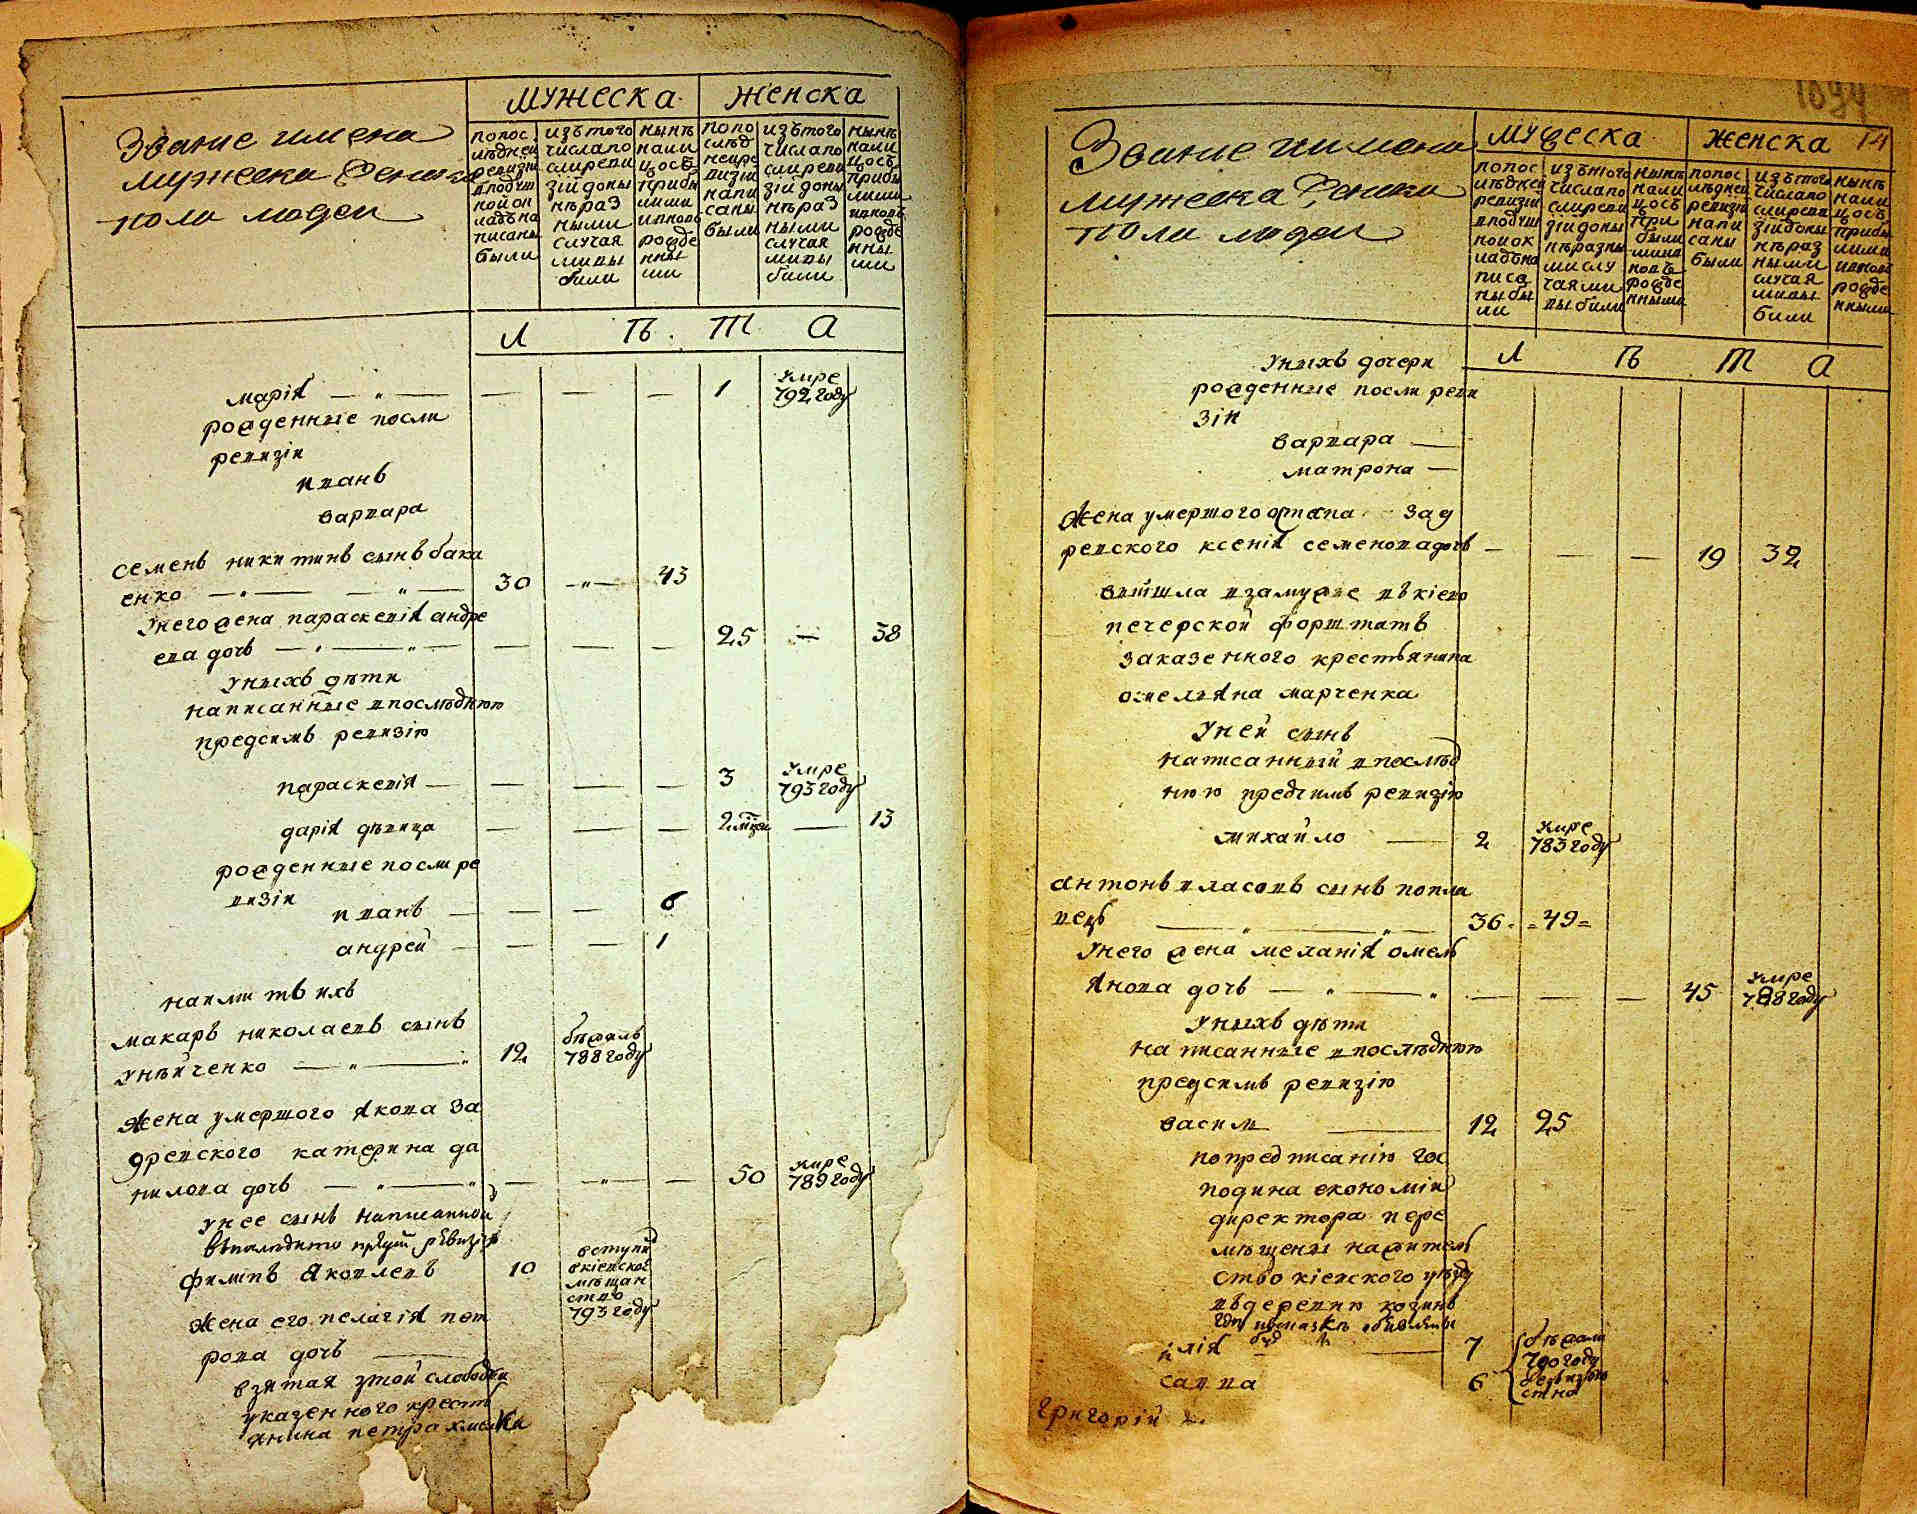 Званіе имена
мужеска женска
пола людей
МУЖЕСКА
ЖЕНСКА
попос
лѣдней
ревизіи
вподуш
ной ок
ладъ на
писаны
были
изътого
числа по
слиреви
зій доны
нѣ раз
ными
случая
ми вы
были
нынѣ
нали
цо съ
прибы
лими
ивново
рожде
нны
ми
попо
слѣд
ней ре
визіи
напи
саны
были
изътого
числа по
слиреви
зій доны
нѣ раз
ными
случая
ми вы
били
нынѣ
нали
цо съ
прибы
лими
ивновъ
рожде
нны
ми
Л Ѣ Т А
марія — — — — 1 умре 792 году
рожденные посли
ревизіи
иванъ
варвара
семенъ никитинъ сынъ бака
енко — — 30 — 43
унего жена параскевія андре
ева дочь — — — — — 25 — 38
уныхъ дѣти
написанные впослѣднюю
предсимъ ревизію
параскевія — — — — 3 умре 793 году
дарія дѣвица — — — 2 мѣсец — 13
рожденные посли ре
визіи
иванъ — — — 6
андрей — — — 1
наимитъ ихъ
макаръ николаевъ сынъ
унѣйченко — — 12 бѣжалъ 788 году
жена умершого якова за
древского катерина да
нилова дочь — — — — — 50 умре 789 году
унее сынъ написанной
впослѣднюю предсим ревизію
филипъ яковлевъ 10 вступил вкіевское мѣщан ство 793 году
жена его пелагія пет
рова дочь —
взятая зтой слободки
указенного кресть
янина петра хмелка
14
Званіе имена
мужеска женска
пола людей
МУЖЕСКА
ЖЕНСКА
попос
лѣдней
ревизіи
вподуш
ной ок
ладъ на
писа
ны бы
ли
изътого
числа по
слиреви
зій доны
нѣ разны
ми слу
чаями
вы били
нынѣ
нали
цо съ
при
были
ми и
новъ
рожде
нными
попос
лѣдней
ревизіи
напи
саны
были
изътого
числа по
слиреви
зій доны
нѣ раз
ными
случая
ми вы
били
нынѣ
нали
цо съ
прибы
лими
ивновъ
рожде
нными
Л Ѣ Т А
уныхъ дочери
рожденные посли реви
зіи
варвара —
матрона —
жена умершого остапа зад
ревского ксенія семенова дочь — — — 19 32
вийшла взамужже въ кіево
печерской форштатъ
заказенного крестьянина
омельяна марченка
уней сынъ
написанный впослѣд
нюю предчимъ ревизію
михайло — 2 умре 783 году
антонъ власовъ сынъ попла
вецъ — — 36 49
унего жена меланія омель
янова дочь — — — — — 45 умре 788 году
уныхъ дѣти
написанные впослѣднюю
предсимъ ревизію
васил — 12 25
попредписанію гос
подина економіи
директора пере
мѣщены нажитель
ство кіевского уѣзду
въ деревню козинъ
илія — 7 бѣжали 790 году
савва 6
григорій